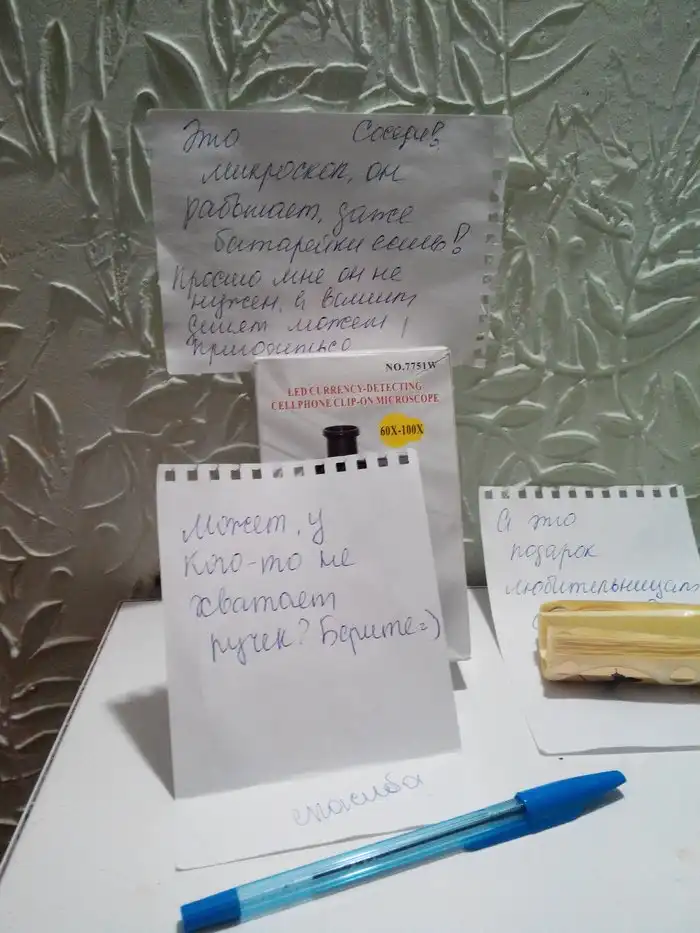 Это Соседи!
микроскоп, он
работает, даже
батарейки есть!
Просто мне он не
нужен, а вашим
детям может
пригодиться
NO.7751W
LED CURRENCY-DETECTING
CELLPHONE CLIP-ON MICROSCOPE
60X-100X
Может, у
кого-то не
хватает
ручек? Берите=)
А это
подарок
любительницам
спасибо